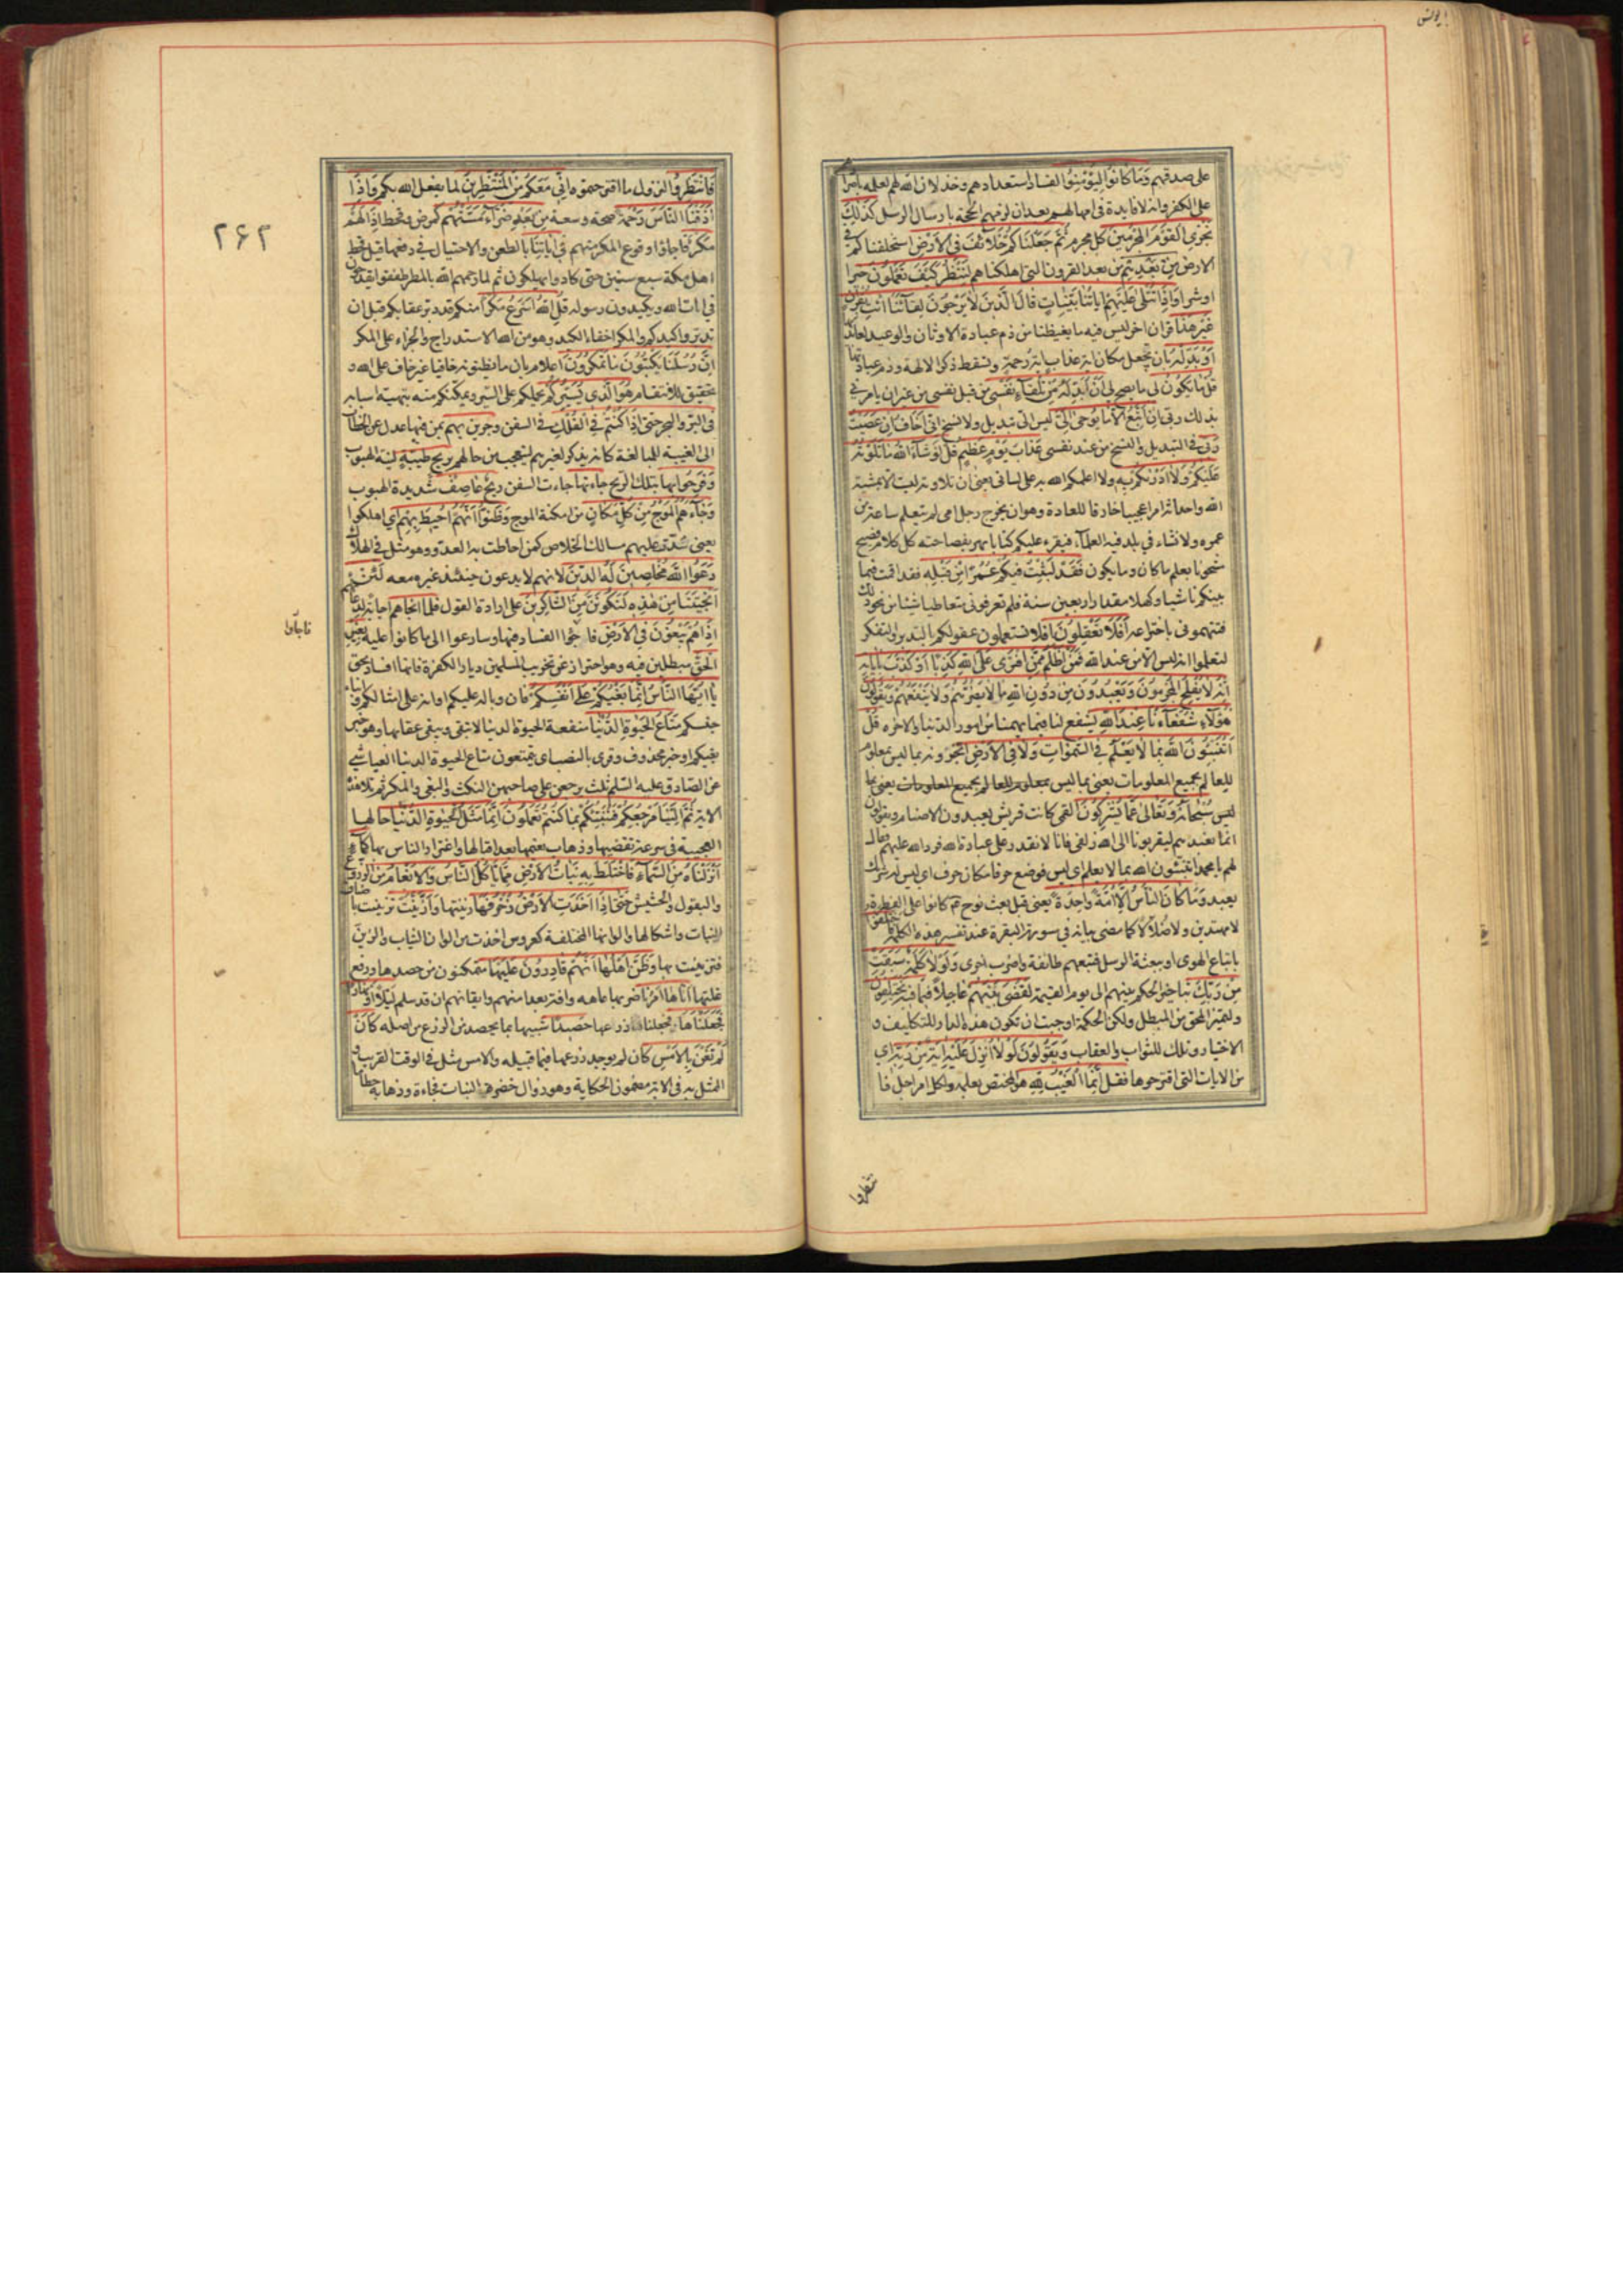 يونس
على صدقهم وَمَا كَانُوا لِيُؤْمِنُوا لفساد استعدادهم وخذلان الله لهم لعلمه باصرارهم
على الكفر وانه لا فايدة فى امهالهم بعد ان لزمهم الحجة بارسال الرسل كَذٰلِكَ
نَجْزِي الْقَوْمَ الْمُجْرِمِينَ كل مجرم ثُمَّ جَعَلْنَاكُمْ خَلَآئِفَ فِي الْأَرْضِ استخلفناكم فى
الارض مِنْ بَعْدِهِمْ من بعد القرون التى اهلكناهم لِنَنْظُرَ كَيْفَ تَعْمَلُونَ خيرا
اوشرا وَاِذَا تُتْلٰى عَلَيْهِمْ اٰيَاتُنَا بَيِّنَاتٍ قَالَ الَّذِينَ لَا يَرْجُونَ لِقَآئَنَا ائْتِ بِقُرْاٰنٍ
غَيْرِ هٰذَا قران اخر ليس فيه ما يغيظنا من ذم عبادة الاوثان والوعيد لعابديها
اَوْ بَدِّلْهُ بان تجعل مكان اية عذاب اية رحمة وتسقط ذكر الالهة وذم عبادتها
قُلْ مَا يَكُونُ لِي ما يصح لى اَنْ اُبَدِّلَهُ مِنْ تِلْقَآءِ نَفْسِي من قبل نفسى من غير ان يامرنى
بذلك ربى اِنْ اَتَّبِعُ اِلَّا مَا يُوحٰى اِلَيَّ ليس الى تبديل ولا نسخ اِنِّي اَخَافُ اِنْ عَصَيْتُ
رَبِّي فى التبديل والنسخ من عند نفسى عَذَابَ يَوْمٍ عَظِيمٍ قُلْ لَوْ شَآءَ اللّٰهُ مَا تَلَوْتُهُ
عَلَيْكُمْ وَلَا اَدْرٰىكُمْ بِهِ ولا اعلمكم الله به على لسانى يعنى ان تلاوته ليست الا بمشية
الله واحداثه امرا عجيبا خارقا للعادة وهو ان يخرج رجل امى لم يتعلم ساعة من
عمره ولا نشاء فى بلد فيه العلمآء فيقرء عليكم كتابا بهر بفصاحته كل كلام فصيح
مشحونا بعلم ما كان وما يكون فَقَدْ لَبِثْتُ فِيكُمْ عُمُرًا مِنْ قَبْلِهِ فقد اقمت فيما
بينكم ناشيا وكهلا مقدار اربعين سنة فلم تعرفونى متعاطيا شيئا من نحو ذلك
فتتهمونى باختراعه اَفَلَا تَعْقِلُونَ افلا تستعملون عقولكم بالتدبر والتفكر
لتعلموا انه ليس الا من عند الله فَمَنْ اَظْلَمُ مِمَّنِ افْتَرٰى عَلَى اللّٰهِ كَذِبًا اَوْ كَذَّبَ بِاٰيَاتِهِ
اِنَّهُ لَا يُفْلِحُ الْمُجْرِمُونَ وَيَعْبُدُونَ مِنْ دُونِ اللّٰهِ مَا لَا يَضُرُّهُمْ وَلَا يَنْفَعُهُمْ وَيَقُولُونَ
هٰؤُلَآءِ شُفَعَآءُنَا عِنْدَ اللّٰهِ يشفع لنا فيما يهمنا من امور الدنيا والاخرة قُلْ
اَتُنَبِّئُونَ اللّٰهَ بِمَا لَا يَعْلَمُ فِي السَّمٰوَاتِ وَلَا فِي الْأَرْضِ اتخبرونه بما ليس بمعلوم
للعالم بجميع المعلومات يعنى بما ليس بمعلوم للعالم بجميع المعلومات يعنى بما
ليس سُبْحَانَهُ وَتَعَالٰى عَمَّا يُشْرِكُونَ القمى كانت قريش يعبدون الاصنام ويقولون
انما نعبدهم ليقربونا الى الله زلفى فانا لا نقدر على عبادة الله فرد الله عليهم فقال
لهم يا محمد اتنبئون الله بما لا يعلم اى ليس فوضع حرفا مكان حرف اى ليس له شريك
يعبد وَمَا كَانَ النَّاسُ اِلَّا اُمَّةً وَاحِدَةً يعنى قبل بعث نوح ع كانوا على الفطرة
لا مهتدين ولا ضلالا كما مضى بيانه فى سورة البقرة عند تفسير هذه الكلمة فَاخْتَلَفُوا
باتباع الهوى او ببعثة الرسل فتبعهم طائفة واصرت اخرى وَلَوْلَا كَلِمَةٌ سَبَقَتْ
مِنْ رَبِّكَ بتاخير الحكم بينهم الى يوم القيمة لَقُضِيَ بَيْنَهُمْ عاجلا فِيمَا فِيهِ يَخْتَلِفُونَ
ولتميز المحق من المبطل ولكن الحكمة اوجبت ان تكون هذه الدار للتكليف و
الاختبار وتلك للثواب والعقاب وَيَقُولُونَ لَوْلَا اُنْزِلَ عَلَيْهِ اٰيَةٌ مِنْ رَبِّهِ اى
من الايات التى اقترحوها فَقُلْ اِنَّمَا الْغَيْبُ لِلّٰهِ هو المختص بعلمه ولكل امر اجل فا
نتظروا
۲۶۲
فَانْتَظِرُوا لنزول ما اقترحتموه اِنِّي مَعَكُمْ مِنَ الْمُنْتَظِرِينَ لما يفعل الله بكم وَاِذَا
اَذَقْنَا النَّاسَ رَحْمَةً صحة وسعة مِنْ بَعْدِ ضَرَّآءَ مَسَّتْهُمْ كمرض وقحط اِذَا لَهُمْ
مَكْرٌ فاجاؤا وقوع المكر منهم فِي اٰيَاتِنَا بالطعن والاحتيال فى دفعها قيل قحط
اهل مكة سبع سنين حتى كادوا يهلكون ثم لما رحمهم الله بالمطر طفقوا يقدحون
فى ايات الله ويكيدون رسوله قُلِ اللّٰهُ اَسْرَعُ مَكْرًا منكم قد دبر عقابكم قبل ان
تدبروا كيدكم والمكر اخفاء الكيد وهو من الله الاستدراج والجزاء على المكر
اِنَّ رُسُلَنَا يَكْتُبُونَ مَا تَمْكُرُونَ اعلام بان ما يظنونه خافيا غير خاف على الله و
تحقيق للانتقام هُوَ الَّذِي يُسَيِّرُكُمْ يحملكم على السير ويمكنكم منه بتهيئة اسبابه
فِي الْبَرِّ وَالْبَحْرِ حَتّٰى اِذَا كُنْتُمْ فِي الْفُلْكِ فى السفن وَجَرَيْنَ بِهِمْ بمن فيها عدل عن الخطاب
الى الغيبة للمبالغة كانه يذكر لغيرهم ليتعجب من حالهم بِرِيحٍ طَيِّبَةٍ لينة الهبوب
وَفَرِحُوا بِهَا بتلك الريح جَآءَتْهَا جاءت السفن رِيحٌ عَاصِفٌ شديدة الهبوب
وَجَآءَهُمُ الْمَوْجُ مِنْ كُلِّ مَكَانٍ من امكنة الموج وَظَنُّوا اَنَّهُمْ اُحِيطَ بِهِمْ اى اهلكوا
يعنى سدت عليهم مسالك الخلاص كمن احاطت به العدو وهو مثل فى الهلاك
دَعَوُا اللّٰهَ مُخْلِصِينَ لَهُ الدِّينَ لانهم لا يدعون حينئذ غيره معه لَئِنْ
اَنْجَيْتَنَا مِنْ هٰذِهِ لَنَكُونَنَّ مِنَ الشَّاكِرِينَ على ارادة القول فَلَمَّا اَنْجَاهُمْ اجابة لدعائهم
اِذَا هُمْ يَبْغُونَ فِي الْأَرْضِ فاجؤا الفساد فيها وسارعوا الى ما كانوا عليه بِغَيْرِ
الْحَقِّ مبطلين فيه وهو احتراز عن تخريب المسلمين ديار الكفرة فانها افساد بحق
يَا اَيُّهَا النَّاسُ اِنَّمَا بَغْيُكُمْ عَلٰى اَنْفُسِكُمْ فان وباله عليكم او انه على امثالكم وابناء
جنسكم مَتَاعَ الْحَيٰوةِ الدُّنْيَا منفعة الحيوة الدنيا لا تبقى ويبقى عقابها وهو خبر
بغيكم او خبر محذوف وقرى بالنصب اى تتمتعون متاع الحيوة الدنيا العياشى
عن الصادق عليه السلم ثلث يرجعن على صاحبهن النكث والبغى والمكر ثم تلا هذه
الاية ثُمَّ اِلَيْنَا مَرْجِعُكُمْ فَنُنَبِّئُكُمْ بِمَا كُنْتُمْ تَعْمَلُونَ اِنَّمَا مَثَلُ الْحَيٰوةِ الدُّنْيَا حالها
العجيبة فى سرعة تقضيها وذهاب نعيمها بعد اقبالها واغترار الناس بها كَمَآءٍ
اَنْزَلْنَاهُ مِنَ السَّمَآءِ فَاخْتَلَطَ بِهِ نَبَاتُ الْأَرْضِ مِمَّا يَأْكُلُ النَّاسُ وَالْأَنْعَامُ من الزروع
والبقول والحشيش حَتّٰى اِذَا اَخَذَتِ الْأَرْضُ زُخْرُفَهَا زينتها وَازَّيَّنَتْ تزينت باصناف
النبات واشكالها والوانها المختلفة كعروس اخذت من الوان الثياب والزين
فتزينت بها وَظَنَّ اَهْلُهَا اَنَّهُمْ قَادِرُونَ عَلَيْهَا متمكنون من حصدها ورفع
غلتها اَتٰاهَا اَمْرُنَا ضرب بها عاهة وافة بعد امنهم وايقانهم ان قد سلم لَيْلًا اَوْ نَهَارًا
فَجَعَلْنَاهَا فجعلنا زرعها حَصِيدًا شبيها بما يحصد من الزرع من اصله كَاَنْ
لَمْ تَغْنَ بِالْأَمْسِ كان لم يوجد زرعها فيما قبيله والامس مثل فى الوقت القريب و
الممثل به فى الاية مضمون الحكاية وهو زوال خضرة النبات فجاءة وذهابه حطاما